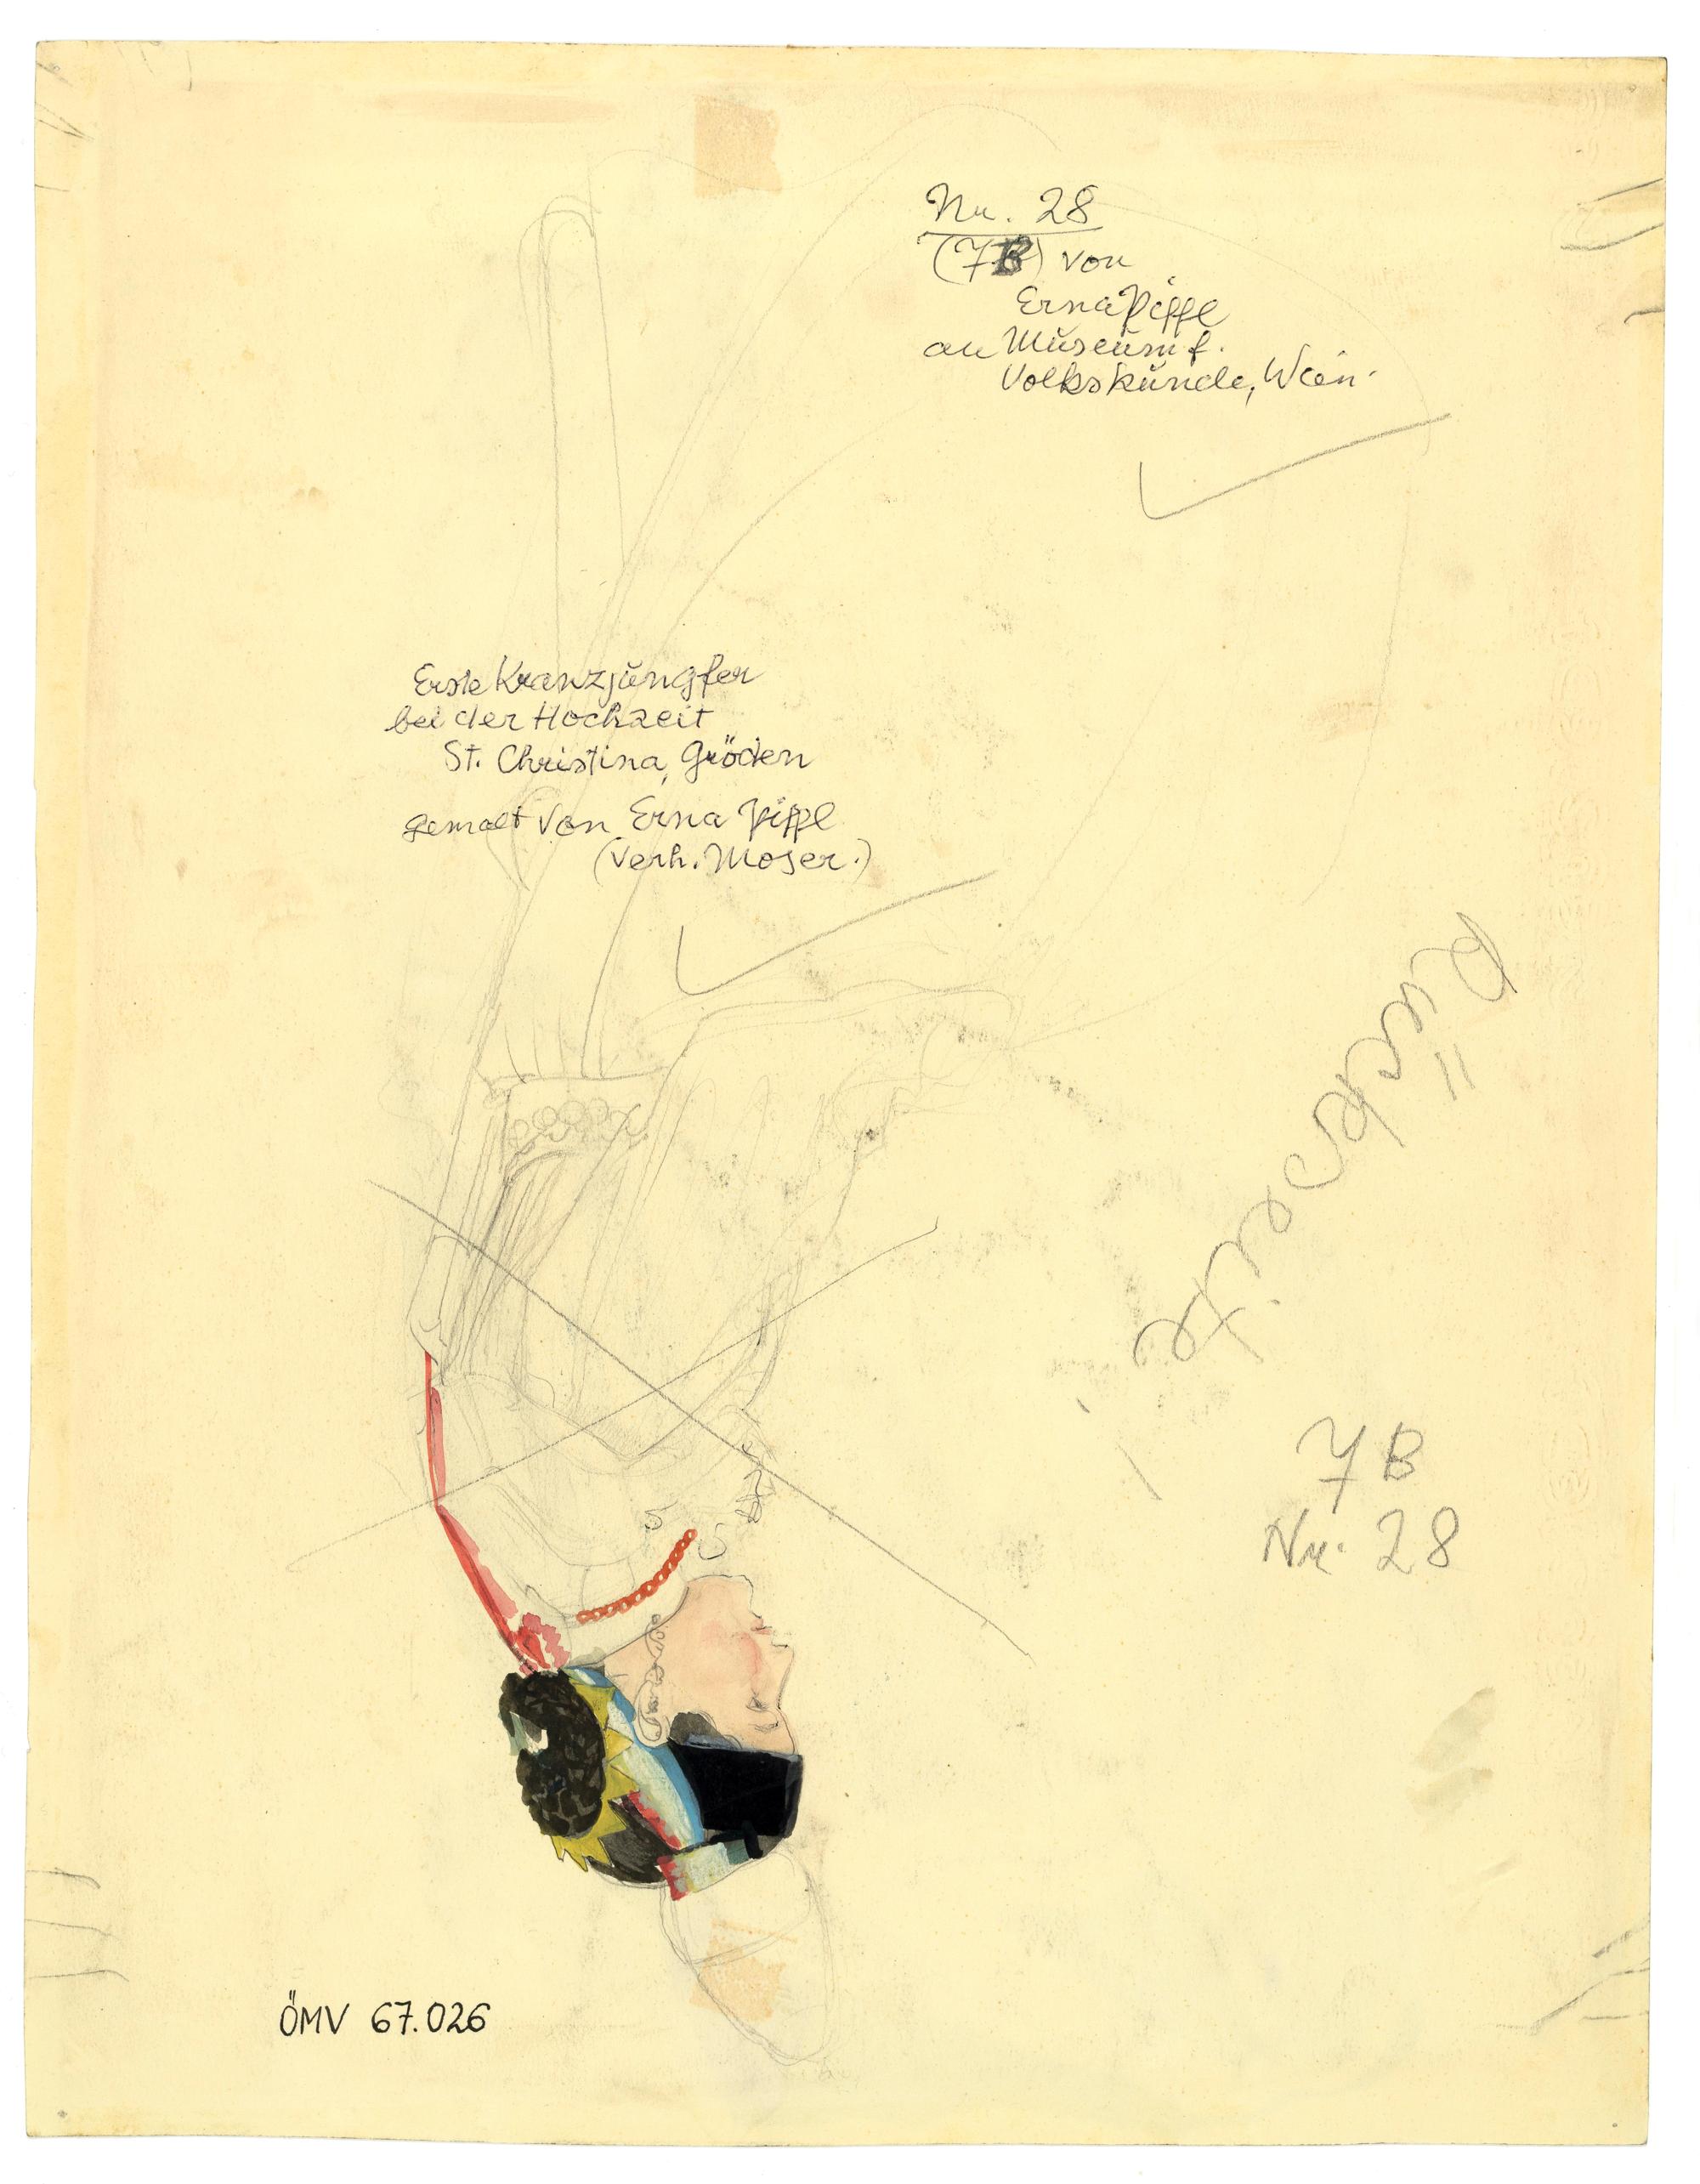 Nr. 28
(7B) von
Erna Piffl
an Museum f.
Volkskunde, Wien.
Erste Kranzjungfer
bei der Hochzeit
St. Christina, Gröden
gemalt von Erna Piffl
(verh. Moser.)
Rückseite!
7B
Nr. 28
ÖMV 67.026